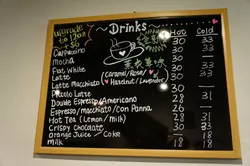 ~ Drinks ~
upgrade
to 12oz
+$6
Hot Cold
Cappuccino 30 33
Mocha 30 33
Flat White 30
Latte 30 33
Latte Macchiato (Caramel/Rose/
Hazelnut/Lavender) 33
Piccolo Latte
Double Espresso/Americano 28 31
Espresso/macchiato/Con Panna 26 —
Hot Tea (Lemon/Milk) 28 31
Crispy Chocolate 30 33
Orange Juice / Coke — 18
Milk 18 18